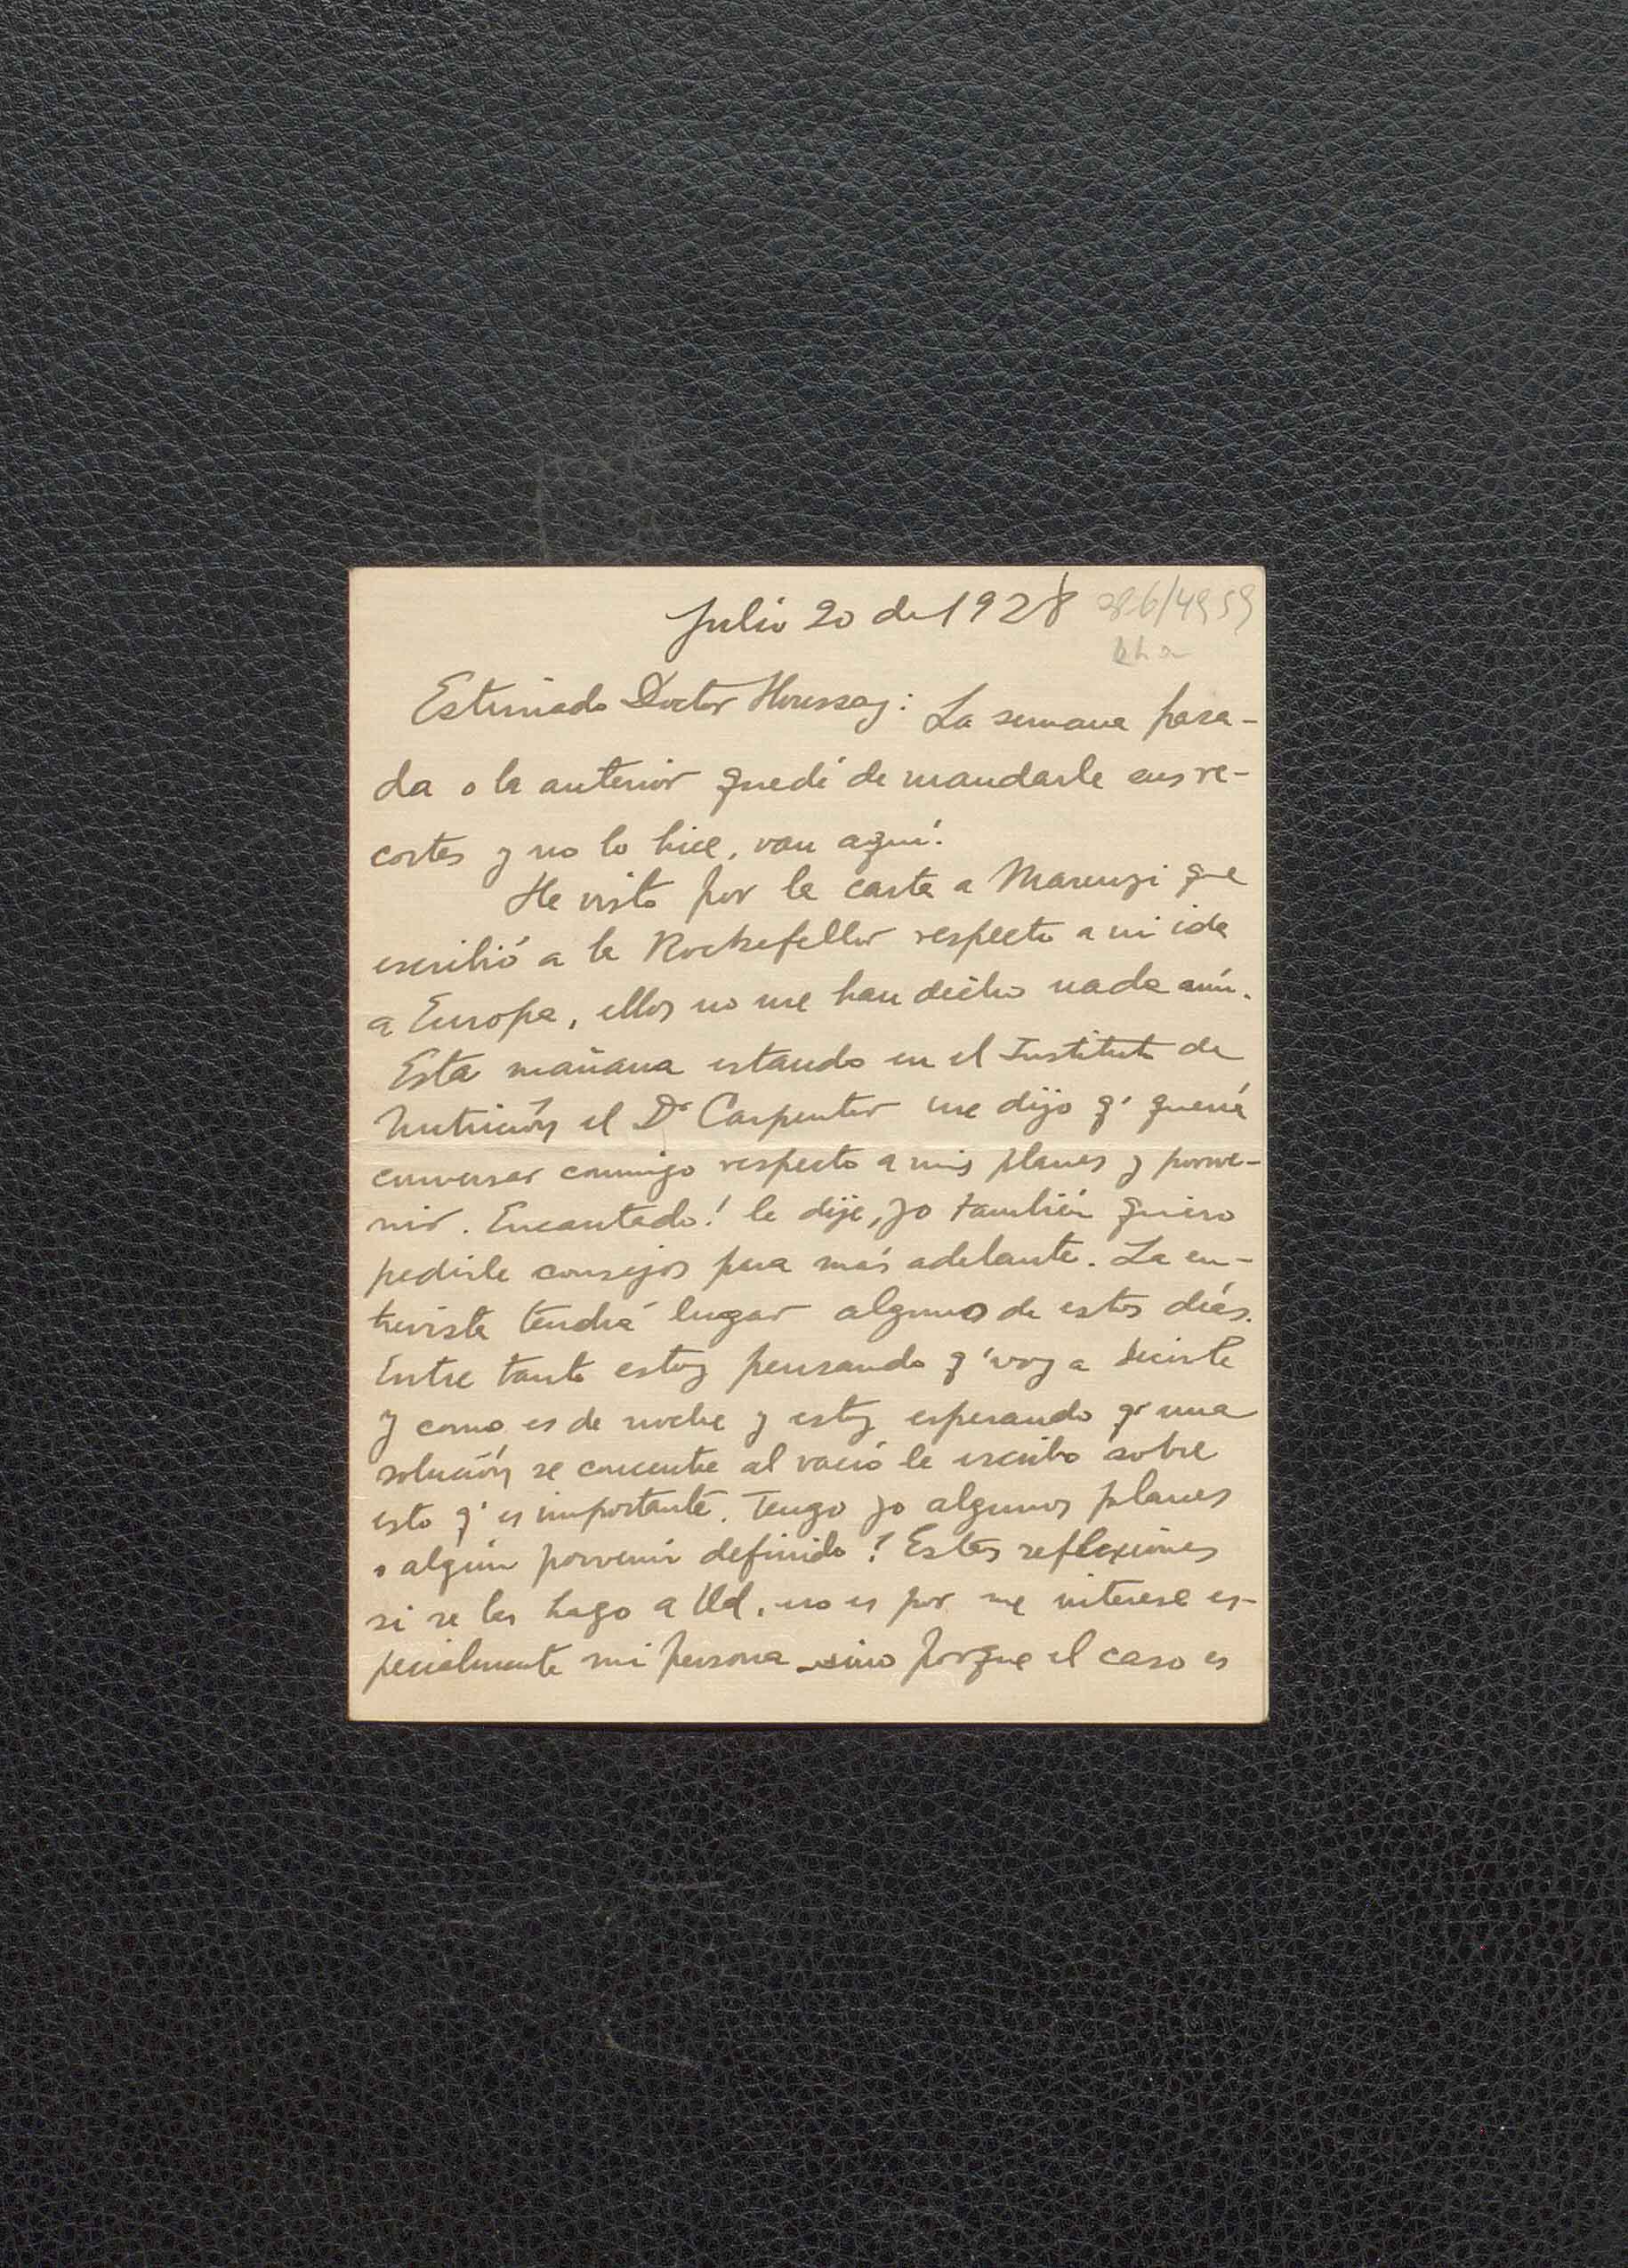 Julio 20 de 1928
Estimado Doctor Houssay: La semana pasa-
da o la anterior quedé de mandarle sus re-
cortes y no lo hice, van aquí.
He visto por la carta a Marenzi que
escribió a la Rockefeller respecto a mi ida
a Europa, ellos no me han dicho nada aún.
Esta mañana estando en el Instituto de
Nutrición el Dr Carpenter me dijo q' quería
conversar conmigo respecto a mis planes y porve-
nir. Encantado! le dije, yo también quiero
pedirle consejos para más adelante. La en-
trevista tendrá lugar alguno de estos días.
Entre tanto estoy pensando q' voy a decirle
y como es de noche y estoy esperando q' una
solución se concentre al vacío le escribo sobre
esto q' es importante. Tengo yo algunos planes
o algún porvenir definido? Estas reflexiones
si se las hago a Ud. no es por me interese es-
pecialmente mi persona sino porque el caso es